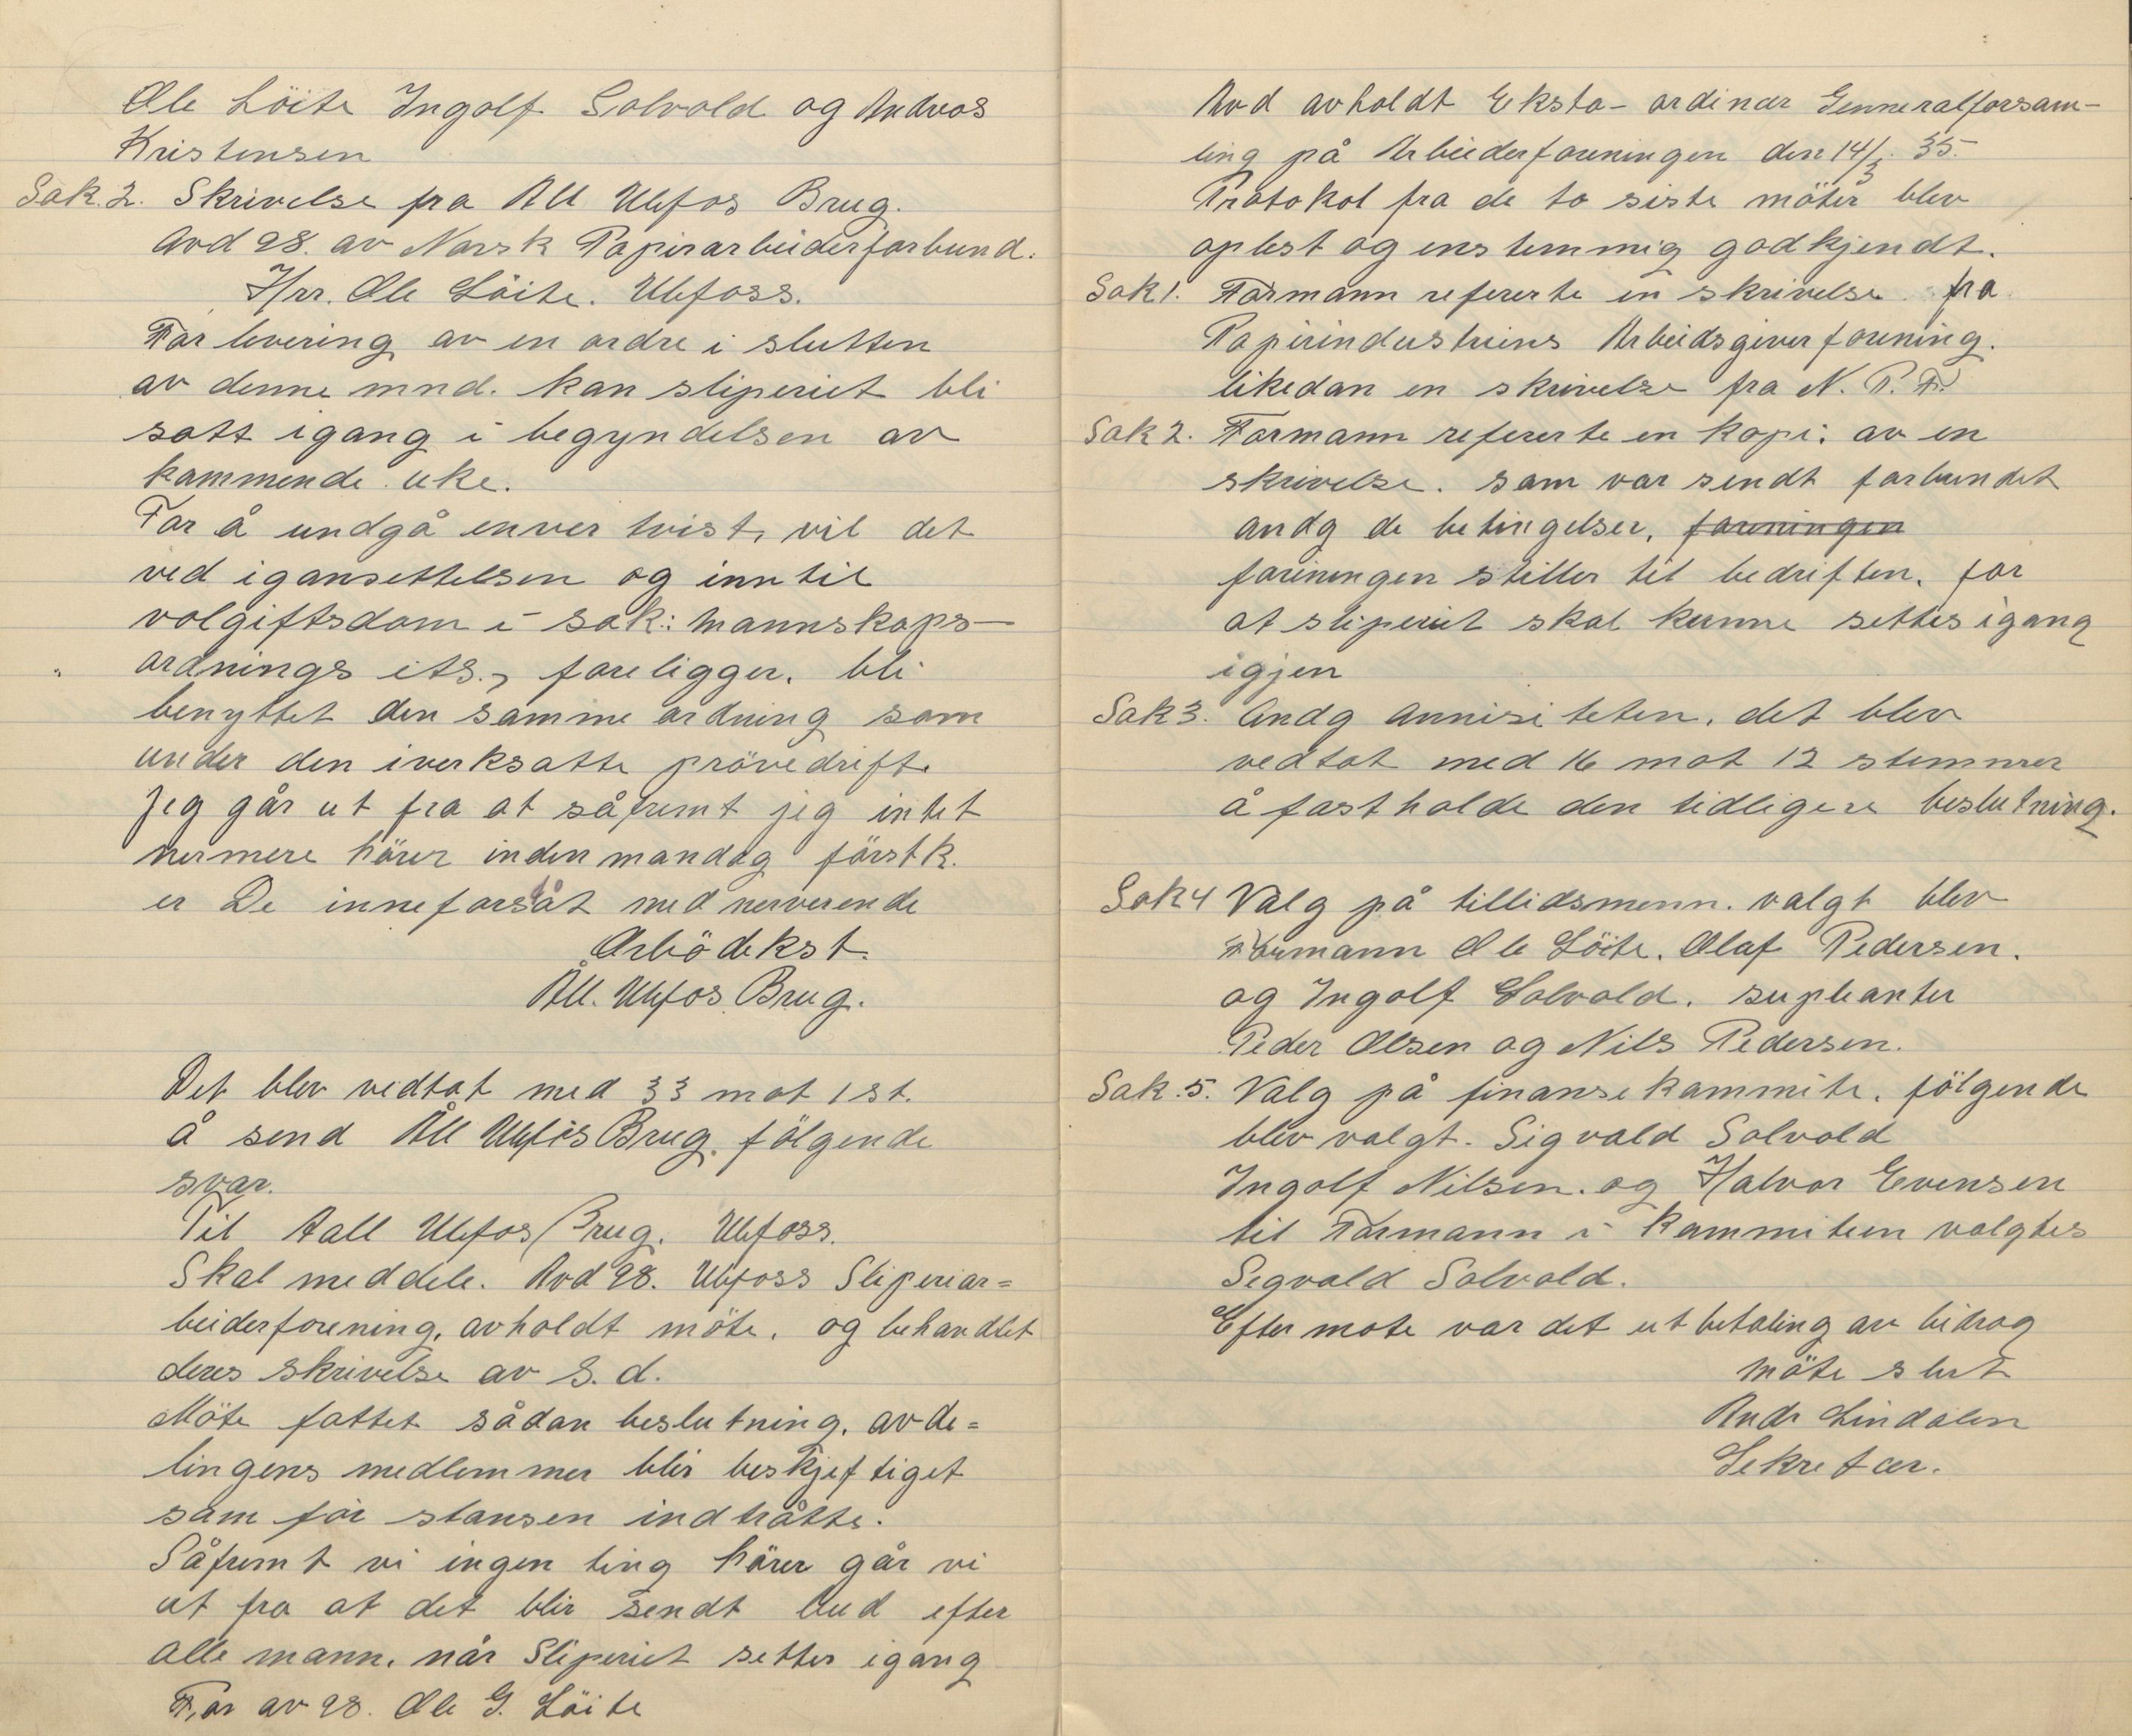 Ole Löite Ingolf Solvold og Andreas
Kristensen
Sak. 2. Skrivelse fra All Ulefos Brug.
Avd 98. av Norsk Papirarbeiderforbund.
Hrr. Ole Löite. Ulefoss.
For levering av en ordre i slutten
av denne mnd. kan sliperiet bli
satt igang i begyndelsen av
kommende uke.
For å undgå enver tvist, vil det
ved igansettelsen og inntil
volgiftsdom i sak: Mannskaps-
ordnings ets., foreligger. bli
benyttet den samme ordning som
under den iverksatte prövedrift.
Jeg går ut fra at såfremt jeg intet
nermere hörer inden mandag förstk.
er De inneforståt med nerverende
Arbödekst.
Åll. Ulefos Brug.
Det blev vedtat med 33 mot 1 st.
å send Åll Ulefos Brug. fölgende
svar.
Til Aall Ulefos Brug. Ulefoss.
Skal meddele. Avd 98. Ulefoss Sliperiar=
beiderforening, avholdt möte. og behandlet
deres skrivelse av S. d.
Möte fattet sådan beslutning. avde=
lingens medlemmer blir beskjeftiget
som för stansen indtråtte.
Såfremt vi ingen ting hörer går vi
ut fra at det blir sendt bud efter
alle mann. når Sliperiet setter igang
For av 98. Ole G. Löite
Avd avholdt Eksta-ordinær Genneralforsam-
ling på Arbeiderforeningen den 14/3. 35.
Protokol fra de to siste möter blev
oplest og enstemmig godkjendt.
Sak 1. Formann refererte en skrivelse fra
Papirindustriens Arbeidsgiverforening.
likedan en skrivelse fra N. P. F.
Sak 2. Formann refererte en kopi: av en
skrivelse. som var sendt forbundet
andg de betingelser, foreningen
foreningen stiller til bedriften. for
at sliperiet skal kunne settes igang
igjen
Sak 3. Andg Annisiteten. det blev
vedtat med 16 mot 12 stemmer
å fastholde den tidligere beslutning.
Sak 4 Valg på tillidsmenn. valgt blev
Formann Ole Löite. Olaf Pedersen.
og Ingolf Solvold. supleanter
Peder Olsen og Nils Pedersen.
Sak. 5. Valg på finansekommite. fölgende
blev valgt. Sigvald Solvold
Ingolf Nilsen. og Halvor Evensen
til Formann i kommiteen valgtes
Segvald Solvold.
Efter mote var det utbetaling av bidrag
Möte slut
Andr Lindalen
Sekretær.